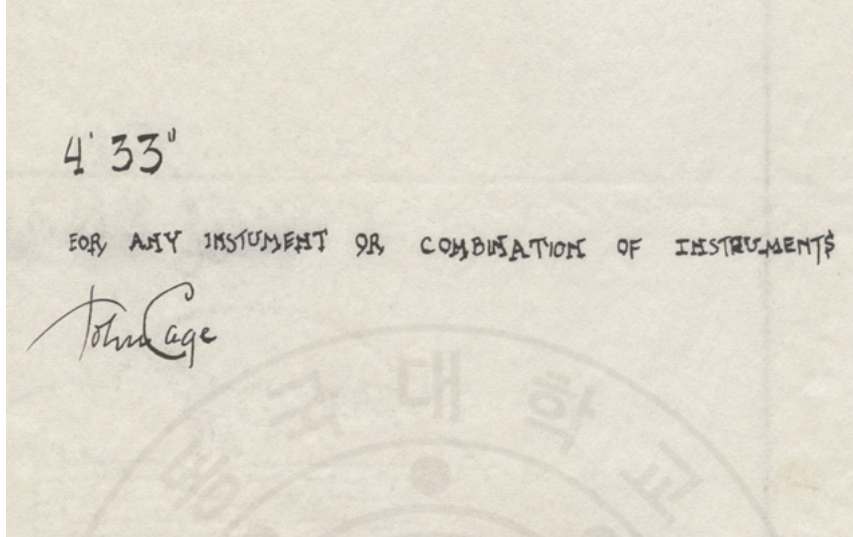 4' 33"
FOR ANY INSTUMENT OR COMBINATION OF INSTRUMENTS
John Cage
동국대학교